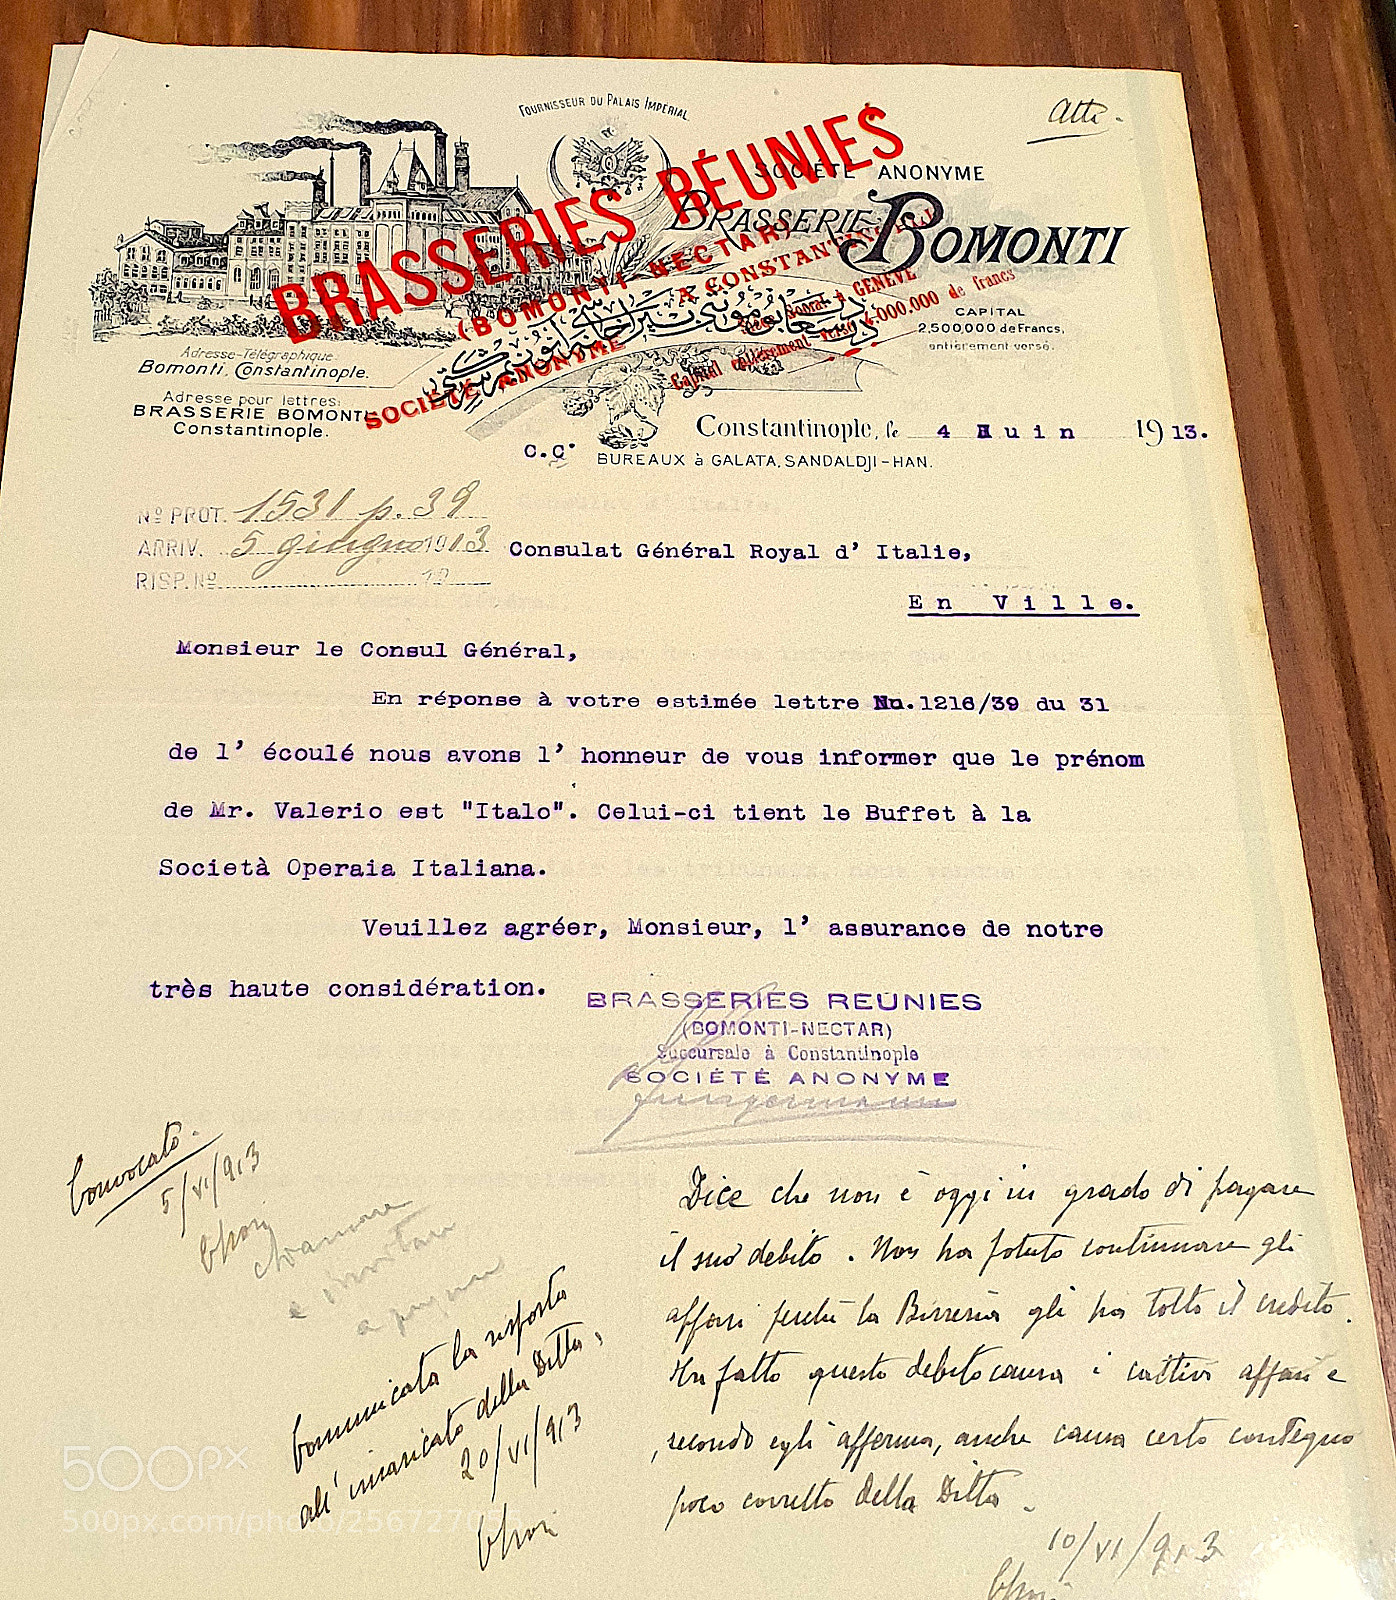 Atti.
FOURNISSEUR DU PALAIS IMPÉRIAL
SOCIÉTÉ ANONYME
BRASSERIE BOMONTI
BRASSERIES RÉUNIES
(BOMONTI-NECTAR)
SOCIÉTÉ ANONYME À CONSTANTINOPLE
Siège Social à GENÈVE
Capital entièrement versé 4.000.000 de francs
CAPITAL
2,500,000 de Francs.
entièrement versé.
Adresse-Télégraphique:
Bomonti, Constantinople.
Adresse pour lettres:
BRASSERIE BOMONTI
Constantinople.
Constantinople, le 4 Juin 1913.
C.C.
BUREAUX à GALATA, SANDALDJI-HAN.
Nº PROT. 1531 p. 39
ARRIV. 5 giugno 1913
RISP. Nº 19
Consulat Général Royal d' Italie,
En Ville.
Monsieur le Consul Général,
En réponse à votre estimée lettre No.1216/39 du 31
de l' écoulé nous avons l' honneur de vous informer que le prénom
de Mr. Valerio est "Italo". Celui-ci tient le Buffet à la
Società Operaia Italiana.
Veuillez agréer, Monsieur, l' assurance de notre
très haute considération.
BRASSERIES RÉUNIES
(BOMONTI-NECTAR)
Succursale à Constantinople
SOCIÉTÉ ANONYME
Convocato.
5/VI/913
chiamare
e invitare
a pagare
Comunicata la risposta
all' incaricato della Ditta,
20/VI/913
Dice che non è oggi in grado di pagare
il suo debito. Non ha potuto continuare gli
affari perché la Birreria gli ha tolto il credito.
Ha fatto questo debito causa i cattivi affari e
, secondo egli afferma, anche causa certo contegno
poco corretto della Ditta.
10/VI/913
500px
500px.com/photo/256727